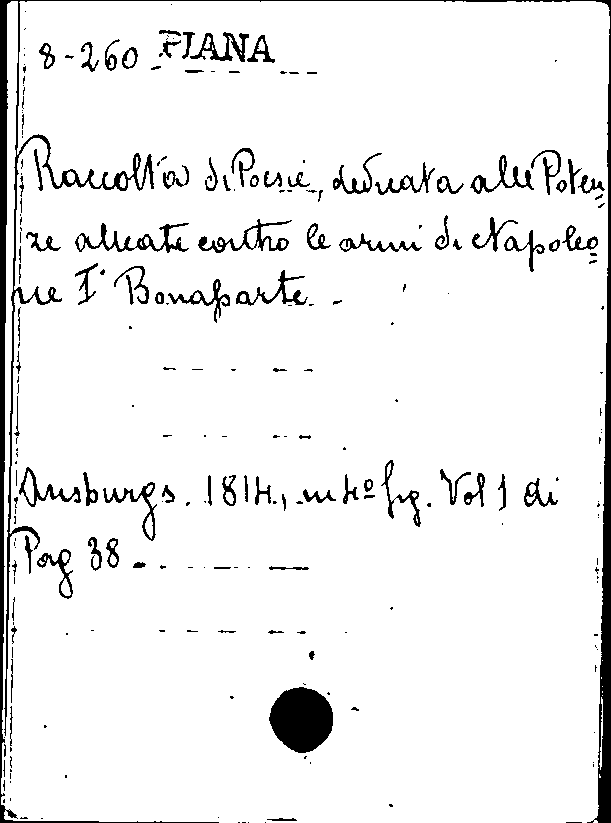 8-260 PIANA
Raccolta di Poesie, dedicata alle Poten=
ze alleate contro le armi di Napoleo=
ne I° Bonaparte. -
Ausburgs. 1814., in 4º fig. Vol 1 di
Pag 38 -